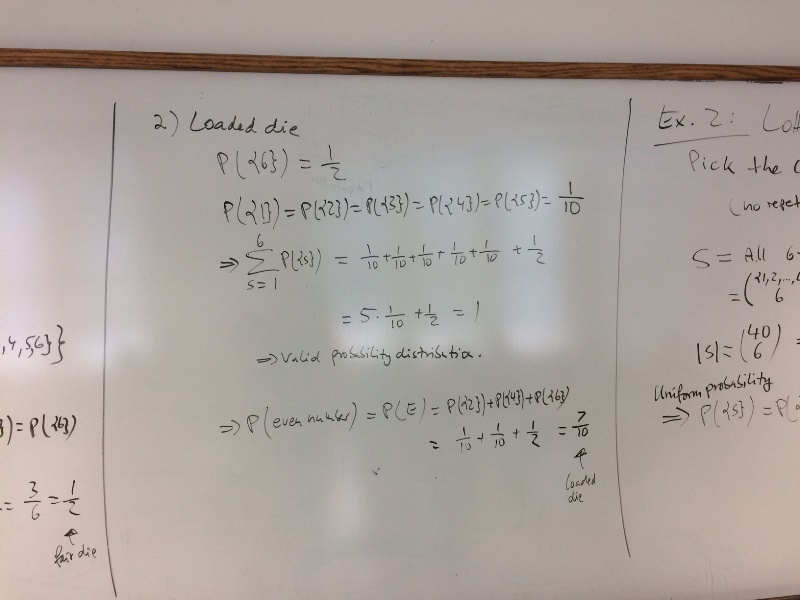 ,4,5,6}
})=P({6})
= 3/6 = 1/2
↑
fair die
2) Loaded die
P({6}) = 1/2
P({1})=P({2})=P({3})=P({4})=P({5})= 1/10
⇒ 6∑s=1 P({s}) = 1/10+1/10+1/10+1/10+1/10 +1/2
= 5·1/10 +1/2 = 1
⇒ Valid probability distribution.
⇒ P(even number) = P(E) = P({2})+P({4})+P({6})
= 1/10 + 1/10 + 1/2 = 7/10
↑
loaded
die
Ex. 2:
Pick the
(no repet
S = All 6-
=({1,2,...,
6
|S|=(40 6) =
Uniform probability
⇒ P({s}) = P({